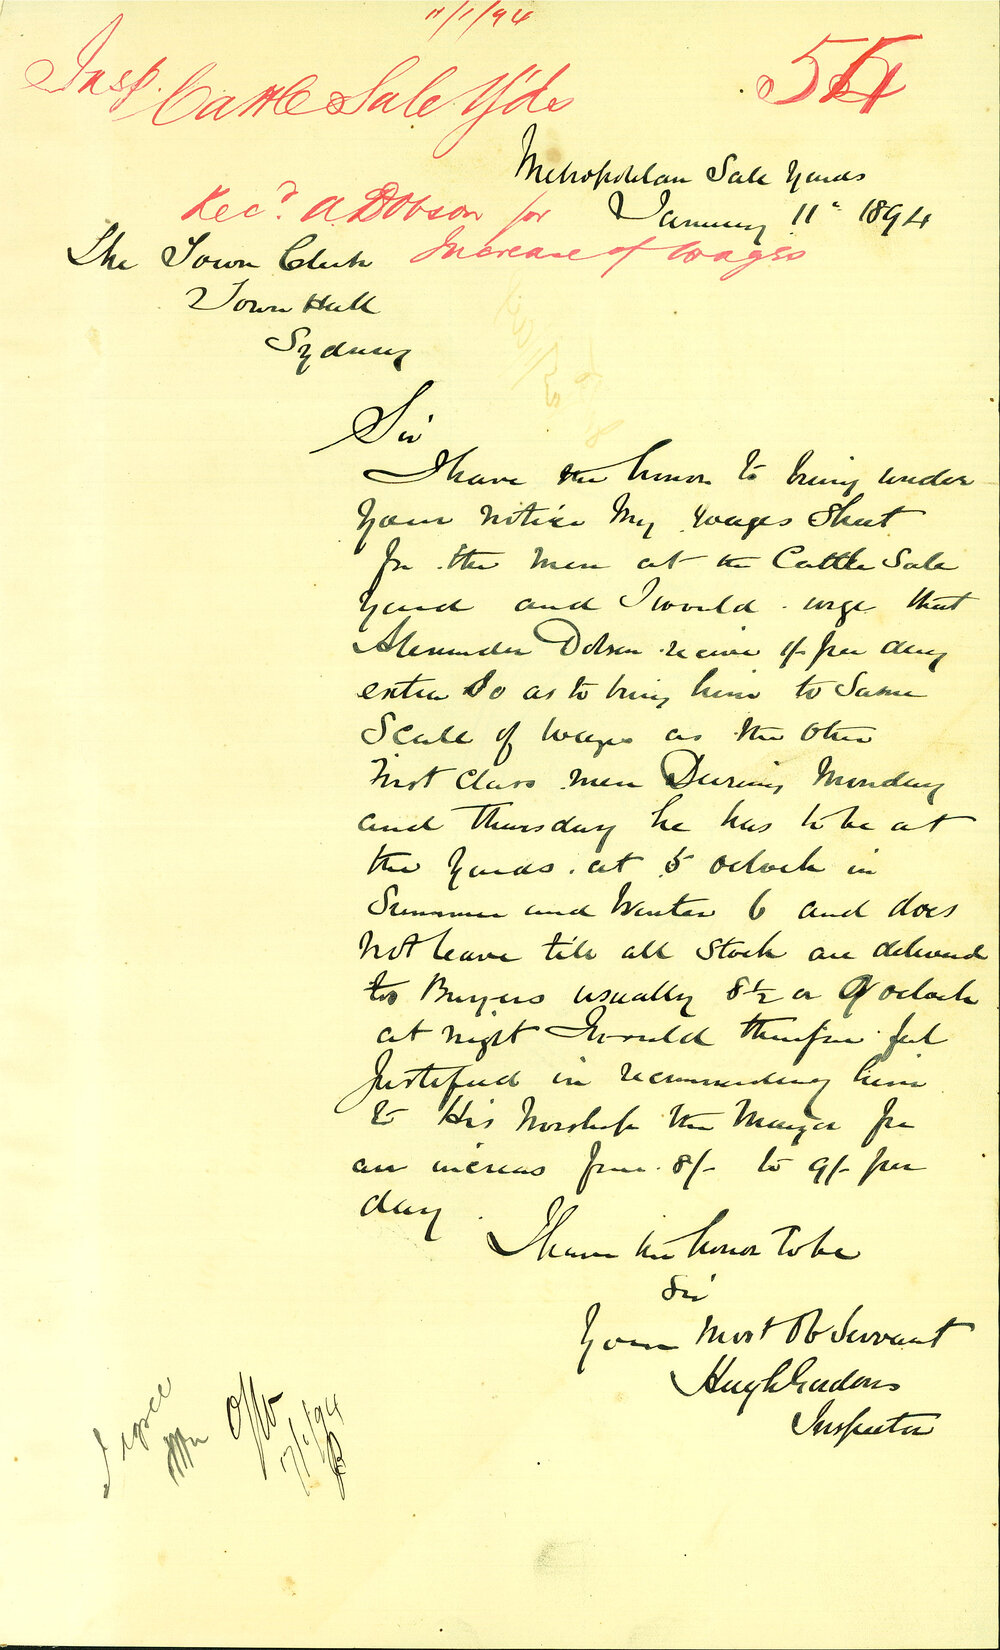 11/1/94
Insp. Cattle Sale Yds
Metropolitan Sale Yards
Rec'd. A Dobson for
January 11th 1894
The Town Clerk
Increase of Wages
Town Hall
Sydney
Sir
I have the honor to bring under
your notice My wages Sheet
for the men at the Cattle Sale
yard and I would urge that
Alexander Dobson receive 1/- per day
extra so as to bring him to Same
Scale of wages as the other
First Class men During Monday
and Thursday he has to be at
the yards at 5 oclock in
Summer and Winter 6 and does
not leave till all Stock are delivered
to Buyers usually 8½ or 9 oclock
at night I would therefore feel
Justified in recommending him
to His Worship the Mayor for
an increas from 8/- to 9/- per
day
I have the honor to be
Sir
Your Most Ob Servant
Inspector
I agree
1/94